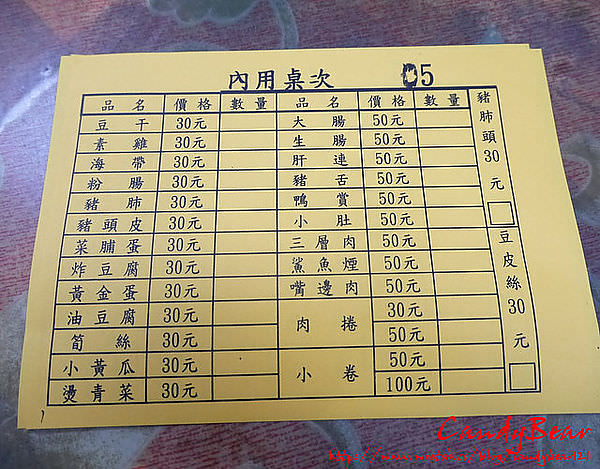 內用桌次 05
品名 價格 數量 品名 價格 數量
豆干 30元 大腸 50元
素雞 30元 生腸 50元
海帶 30元 肝連 50元
粉腸 30元 豬舌 50元
豬肺 30元 鴨賞 50元
豬頭皮 30元 小肚 50元
菜脯蛋 30元 三層肉 50元
炸豆腐 30元 鯊魚煙 50元
黃金蛋 30元 嘴邊肉 50元
油豆腐 30元 肉捲 30元
筍絲 30元 50元
小黃瓜 30元 小卷 50元
燙青菜 30元 100元
豬肺頭30元
豆皮絲30元
CandyBear